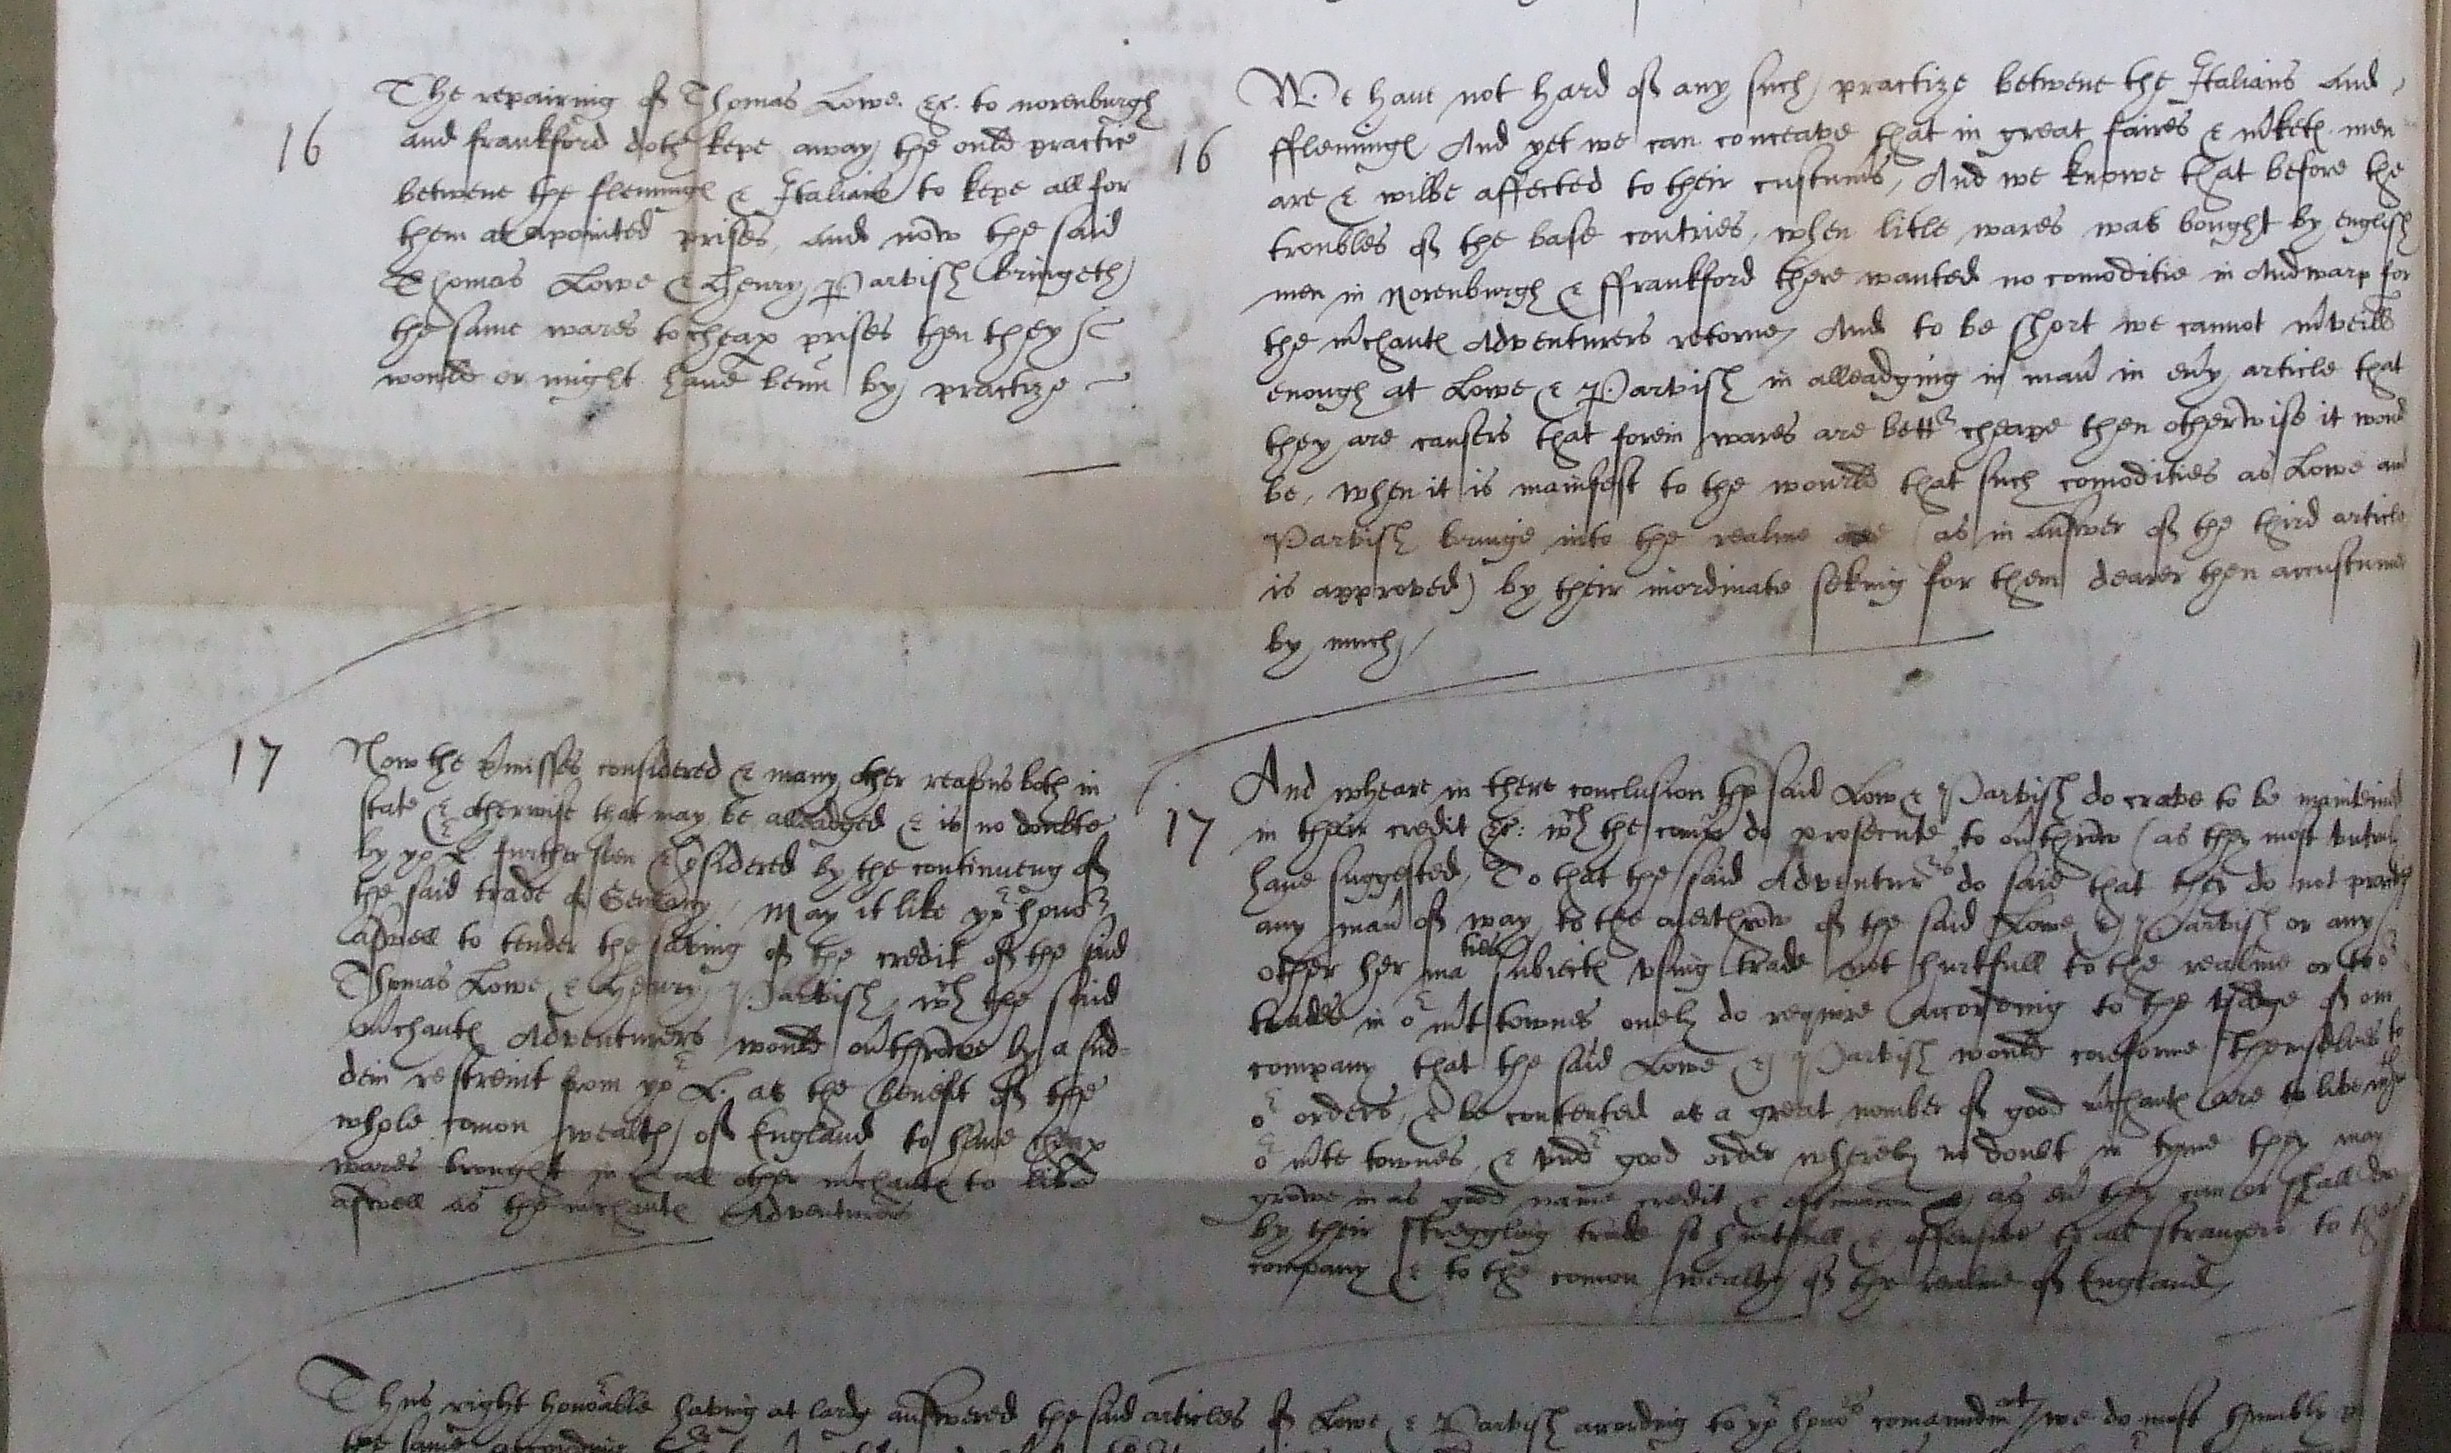 16
The repairing of Thomas Lowe. &c. to norenburgh
and frankford doth kepe away the ould practice
betwene the fleminges & Italians to kepe all for
them at apointed prises, and now the said
Thomas Lowe & Henry Parvish bringeth
the same wares to cheap prises then they
would or might have benn by practize
16
We have not hard of any such practize betwene the Italians And
ffleminges And yet we can conceave that in great faires & mketes men
are & wilbe affected to their custums, And we knowe that before the
troubles of the base contries, when litle wares was bought by english
men in Norenburgh & ffrankford there wanted no comoditie in Andwarp for
the mchantes Adventurers retorne, And to be short we cannot mveill
enough at Lowe & Parvish in alleadging in man in evy article that
they are causers that forein wares are bettr cheape then otherwise it would
be, when it is manifest to the would that such comodities as Lowe and
Parvish bringe into the realme are (as in answer of the third article
is approved) by their inordinate seking for them dearer then accustumed
by much,
17
Now the pmisses considered & many other reasons both in
state & otherwise that may be alleadged & is no doubte
by yor L further seen & considered by the continueng of
the said trade of Germany, May it like yor honor
aswell to tender the saving of the credit of the said
Thomas Lowe & Henry Parvish, wch the said
mchantes Adventurers would ovthrowe by a sud-
dein restreint from yor L. as the benefit of the
whole comon wealth of England to have cheap
wares brought in & all other mchantes to live
aswell as the mchantes Adventurers
17
And wheare in there conclusion the said Low & Parvish do crave to be mainteined
in their credit &c: wch the compa do prosecute to ovthrow (as they most untruly
have suggested, To that the said Adventurers do said that they do not
any man of way to the overthrow of the said Lowe & Parvish or any
other her maties subiectes using trade not hurtfull to the realme or to or
trades in or mt townes onely do require according to the usage of our
company that the said Lowe & Parvish would conforme themselves to
or orders, & be contented as a great nomber of good mchantes are to live in
or mte townes, & undr good order whereby no doubt in tyme they may
growe in as good name credit & estimacon as ev they can or shall do
by their streggling trade so hurtfull & offensive to all strangers to the
company & to the comon wealth of the realme of England,
Thus right honorable having at lardg answered the said articles of Lowe & Parvish acording to yor honors comaundmet, we do most humbly
the same according